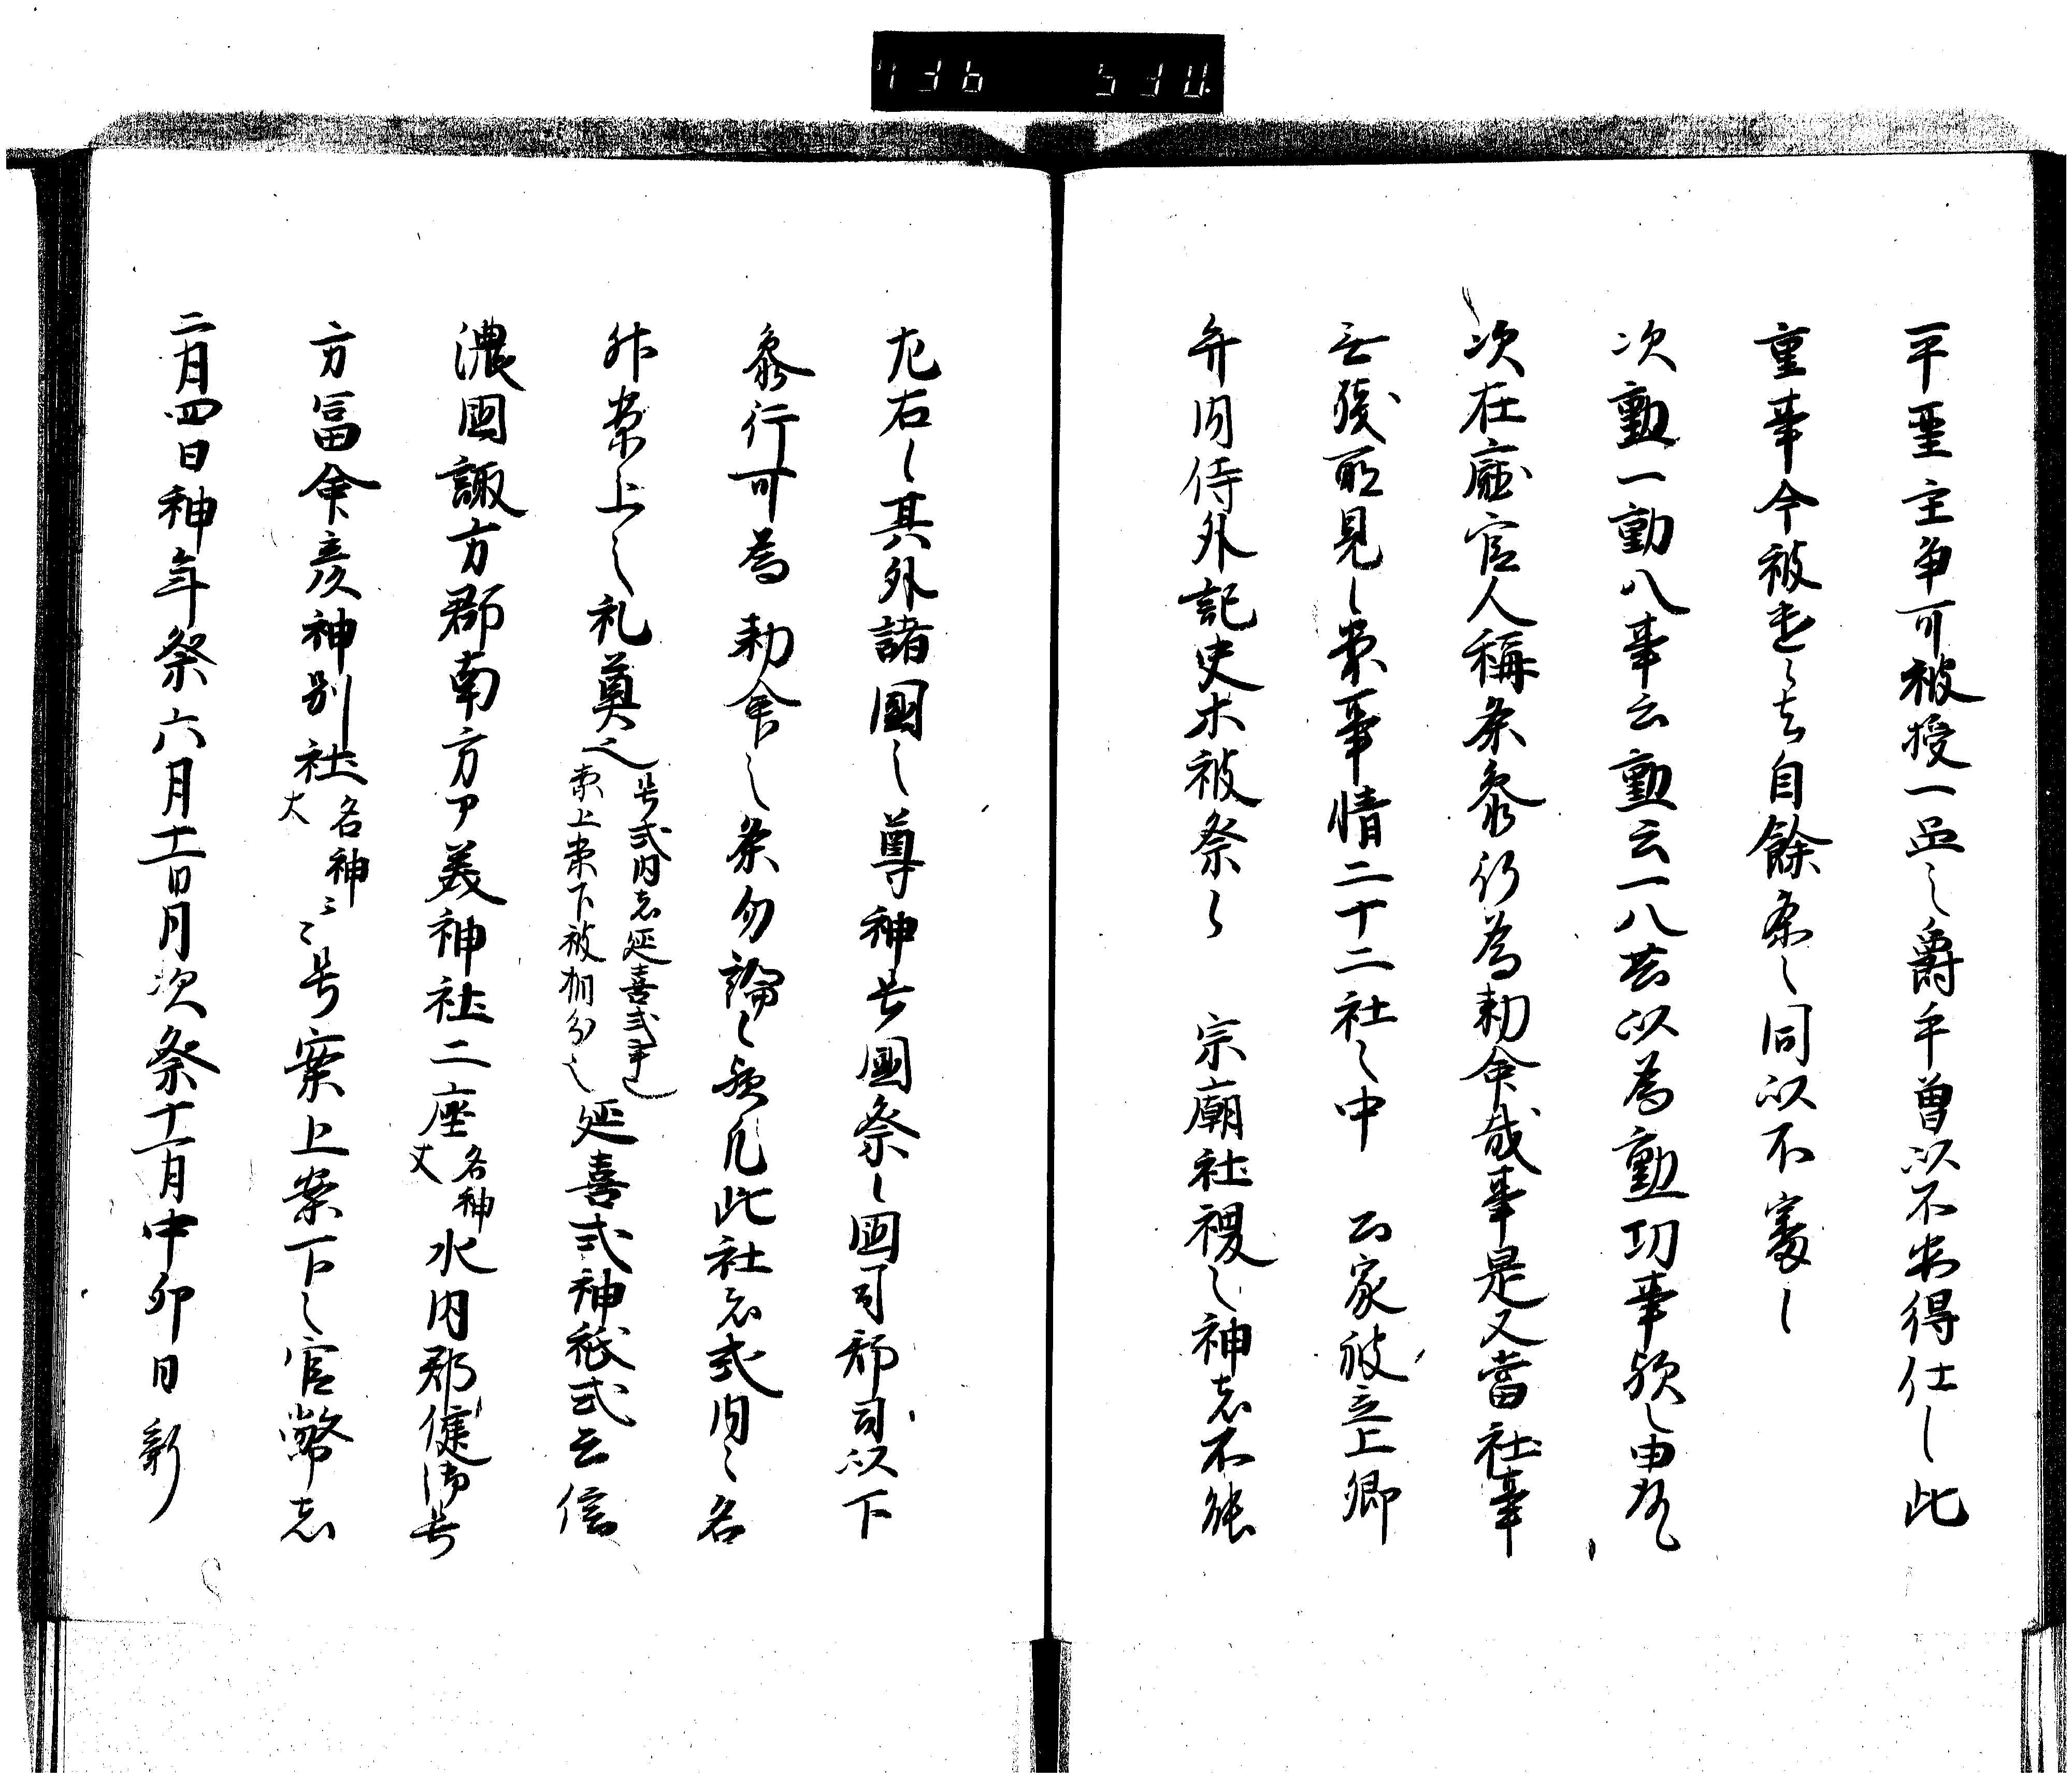 一平聖主争可被授一品之爵乎曽以不出得仕之此
重事今被走之者自餘条之同以不審之
次勲一勲八事云勲云一八共以為勲功事歟之由

次在廰官人称条参行為勅命哉事是又當社事
無残所見之案事情二十二社之中 公家被立上卿
弁内侍外記史木被祭之 宗廟社稷之神者不能
左右之其外諸國之尊神者國祭之國司郡司以下
参行可為勅命之条勿論之歟凡此社者式内之名
神案上之礼奠之
号式内者延喜式事也
案上案下被相分之
延喜式神祇式云信
濃國諏方郡南方刀美神社二座 名神
大
水内郡健御名
方冨命彦神別社 名神
大
云云号案上案下之官幣者
二月四日神年祭六月十一日月次祭十一月中卯日新